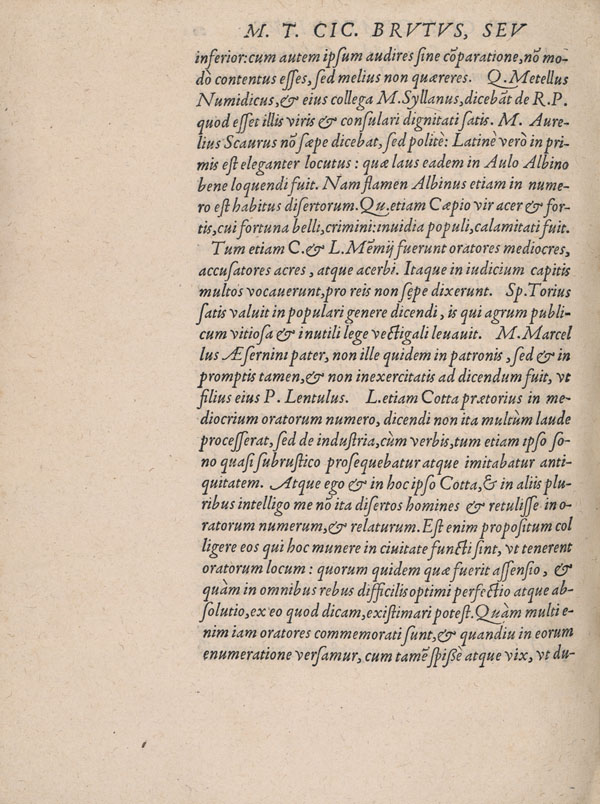 M. T. CIC. BRVTVS, SEV
inferior: cum autem ipsum audires sine cōparatione, nō mo-
dò contentus esses, sed melius non quæreres. Q. Metellus
Numidicus, & eius collega M. Syllanus, dicebāt de R. P.
quod esset illis viris & consulari dignitati satis. M. Aure-
lius Scaurus nō sæpe dicebat, sed politè: Latinè verò in pri-
mis est eleganter locutus: quæ laus eadem in Aulo Albino
bene loquendi fuit. Nam flamen Albinus etiam in nume-
ro est habitus disertorum. Qu. etiam Cæpio vir acer & for-
tis, cui fortuna belli, crimini: inuidia populi, calamitati fuit.
Tum etiam C. & L. Mēmij fuerunt oratores mediocres,
accusatores acres, atque acerbi. Itaque in iudicium capitis
multos vocauerunt, pro reis non sępe dixerunt. Sp. Torius
satis valuit in populari genere dicendi, is qui agrum publi-
cum vitiosa & inutili lege vectigali leuauit. M. Marcel
lus Æsernini pater, non ille quidem in patronis, sed & in
promptis tamen, & non inexercitatis ad dicendum fuit, vt
filius eius P. Lentulus. L. etiam Cotta prætorius in me-
diocrium oratorum numero, dicendi non ita multùm laude
processerat, sed de industria, cùm verbis, tum etiam ipso so-
no quasi subrustico prosequebatur atque imitabatur anti-
quitatem. Atque ego & in hoc ipso Cotta, & in aliis plu-
ribus intelligo me nō ita disertos homines & retulisse in o-
ratorum numerum, & relaturum. Est enim propositum col
ligere eos qui hoc munere in ciuitate functi sint, vt tenerent
oratorum locum: quorum quidem quæ fuerit assensio, &
quàm in omnibus rebus difficilis optimi perfectio atque ab-
solutio, ex eo quod dicam, existimari potest. Quàm multi e-
nim iam oratores commemorati sunt, & quandiu in eorum
enumeratione versamur, cum tamē spissè atque vix, vt du-